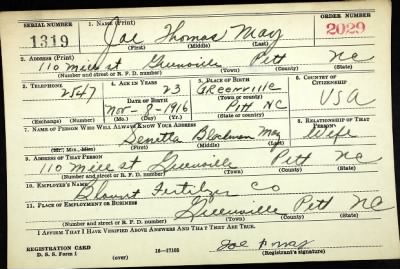 SERIAL NUMBER 1. NAME (Print) ORDER NUMBER
1319 Joe Thomas May 2029
(First) (Middle) (Last)
2. ADDRESS (Print)
110 Mill st Greenville Pitt NC
(Number and street or R. F. D. number) (Town) (County) (State)
3. TELEPHONE 4. AGE IN YEARS 5. PLACE OF BIRTH 6. COUNTRY OF CITIZENSHIP
2547 23 Greenville
DATE OF BIRTH (Town or county)
Nov- 8-1916 Pitt NC USA
(Exchange) (Number) (Mo.) (Day) (Yr.) (State or country)
7. NAME OF PERSON WHO WILL ALWAYS KNOW YOUR ADDRESS 8. RELATIONSHIP OF THAT PERSON
Blackman May Wife
(Mr., Mrs., Miss) (First) (Middle) (Last)
9. ADDRESS OF THAT PERSON
110 Mill st Greenville Pitt NC
(Number and street or R. F. D. number) (Town) (County) (State)
10. EMPLOYER'S NAME
Blount Fertilizer Co
11. PLACE OF EMPLOYMENT OR BUSINESS
Greenville Pitt NC
(Number and street or R. F. D. number) (Town) (County) (State)
I AFFIRM THAT I HAVE VERIFIED ABOVE ANSWERS AND THAT THEY ARE TRUE.
Joe T May
REGISTRATION CARD
D. S. S. Form 1 (over) 16—17105 (Registrant's signature)